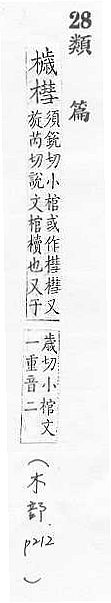 28類篇
槥
須鋭切小棺或作槥槥又
旋芮切說文棺櫝也又于
歲切小棺文
一重音二
(木部. p212)